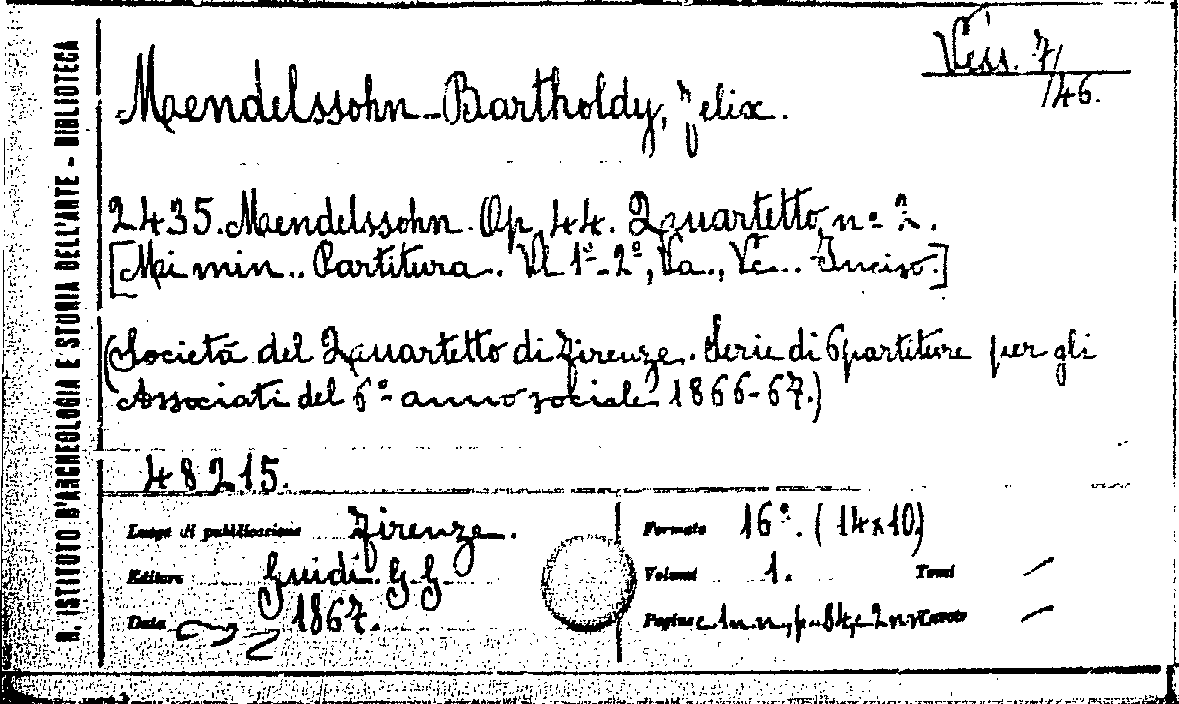 R. ISTITUTO D'ARCHEOLOGIA E STORIA DELL'ARTE - BIBLIOTECA
Vess. 7/
/46.
Mendelssohn-Bartholdy, Felix.
2435. Mendelssohn. Op. 44. Quartetto, n° 2.
[Mi min.. Partitura. Vl 1°-2°, Va., Vc.. Inciso.]
(Società del Quartetto di Firenze. Serie di 6 partiture per gli
Associati del 6° anno sociale 1866-67.)
48215.
Luogo di pubblicazione Firenze.
Editore Guidi. G. G.
Data 1867.
Formato 16°. (14x10)
Volumi 1. Tomi /
Pagine c. 1 n. n., p. 84, c. 2 n. n. Tavole /